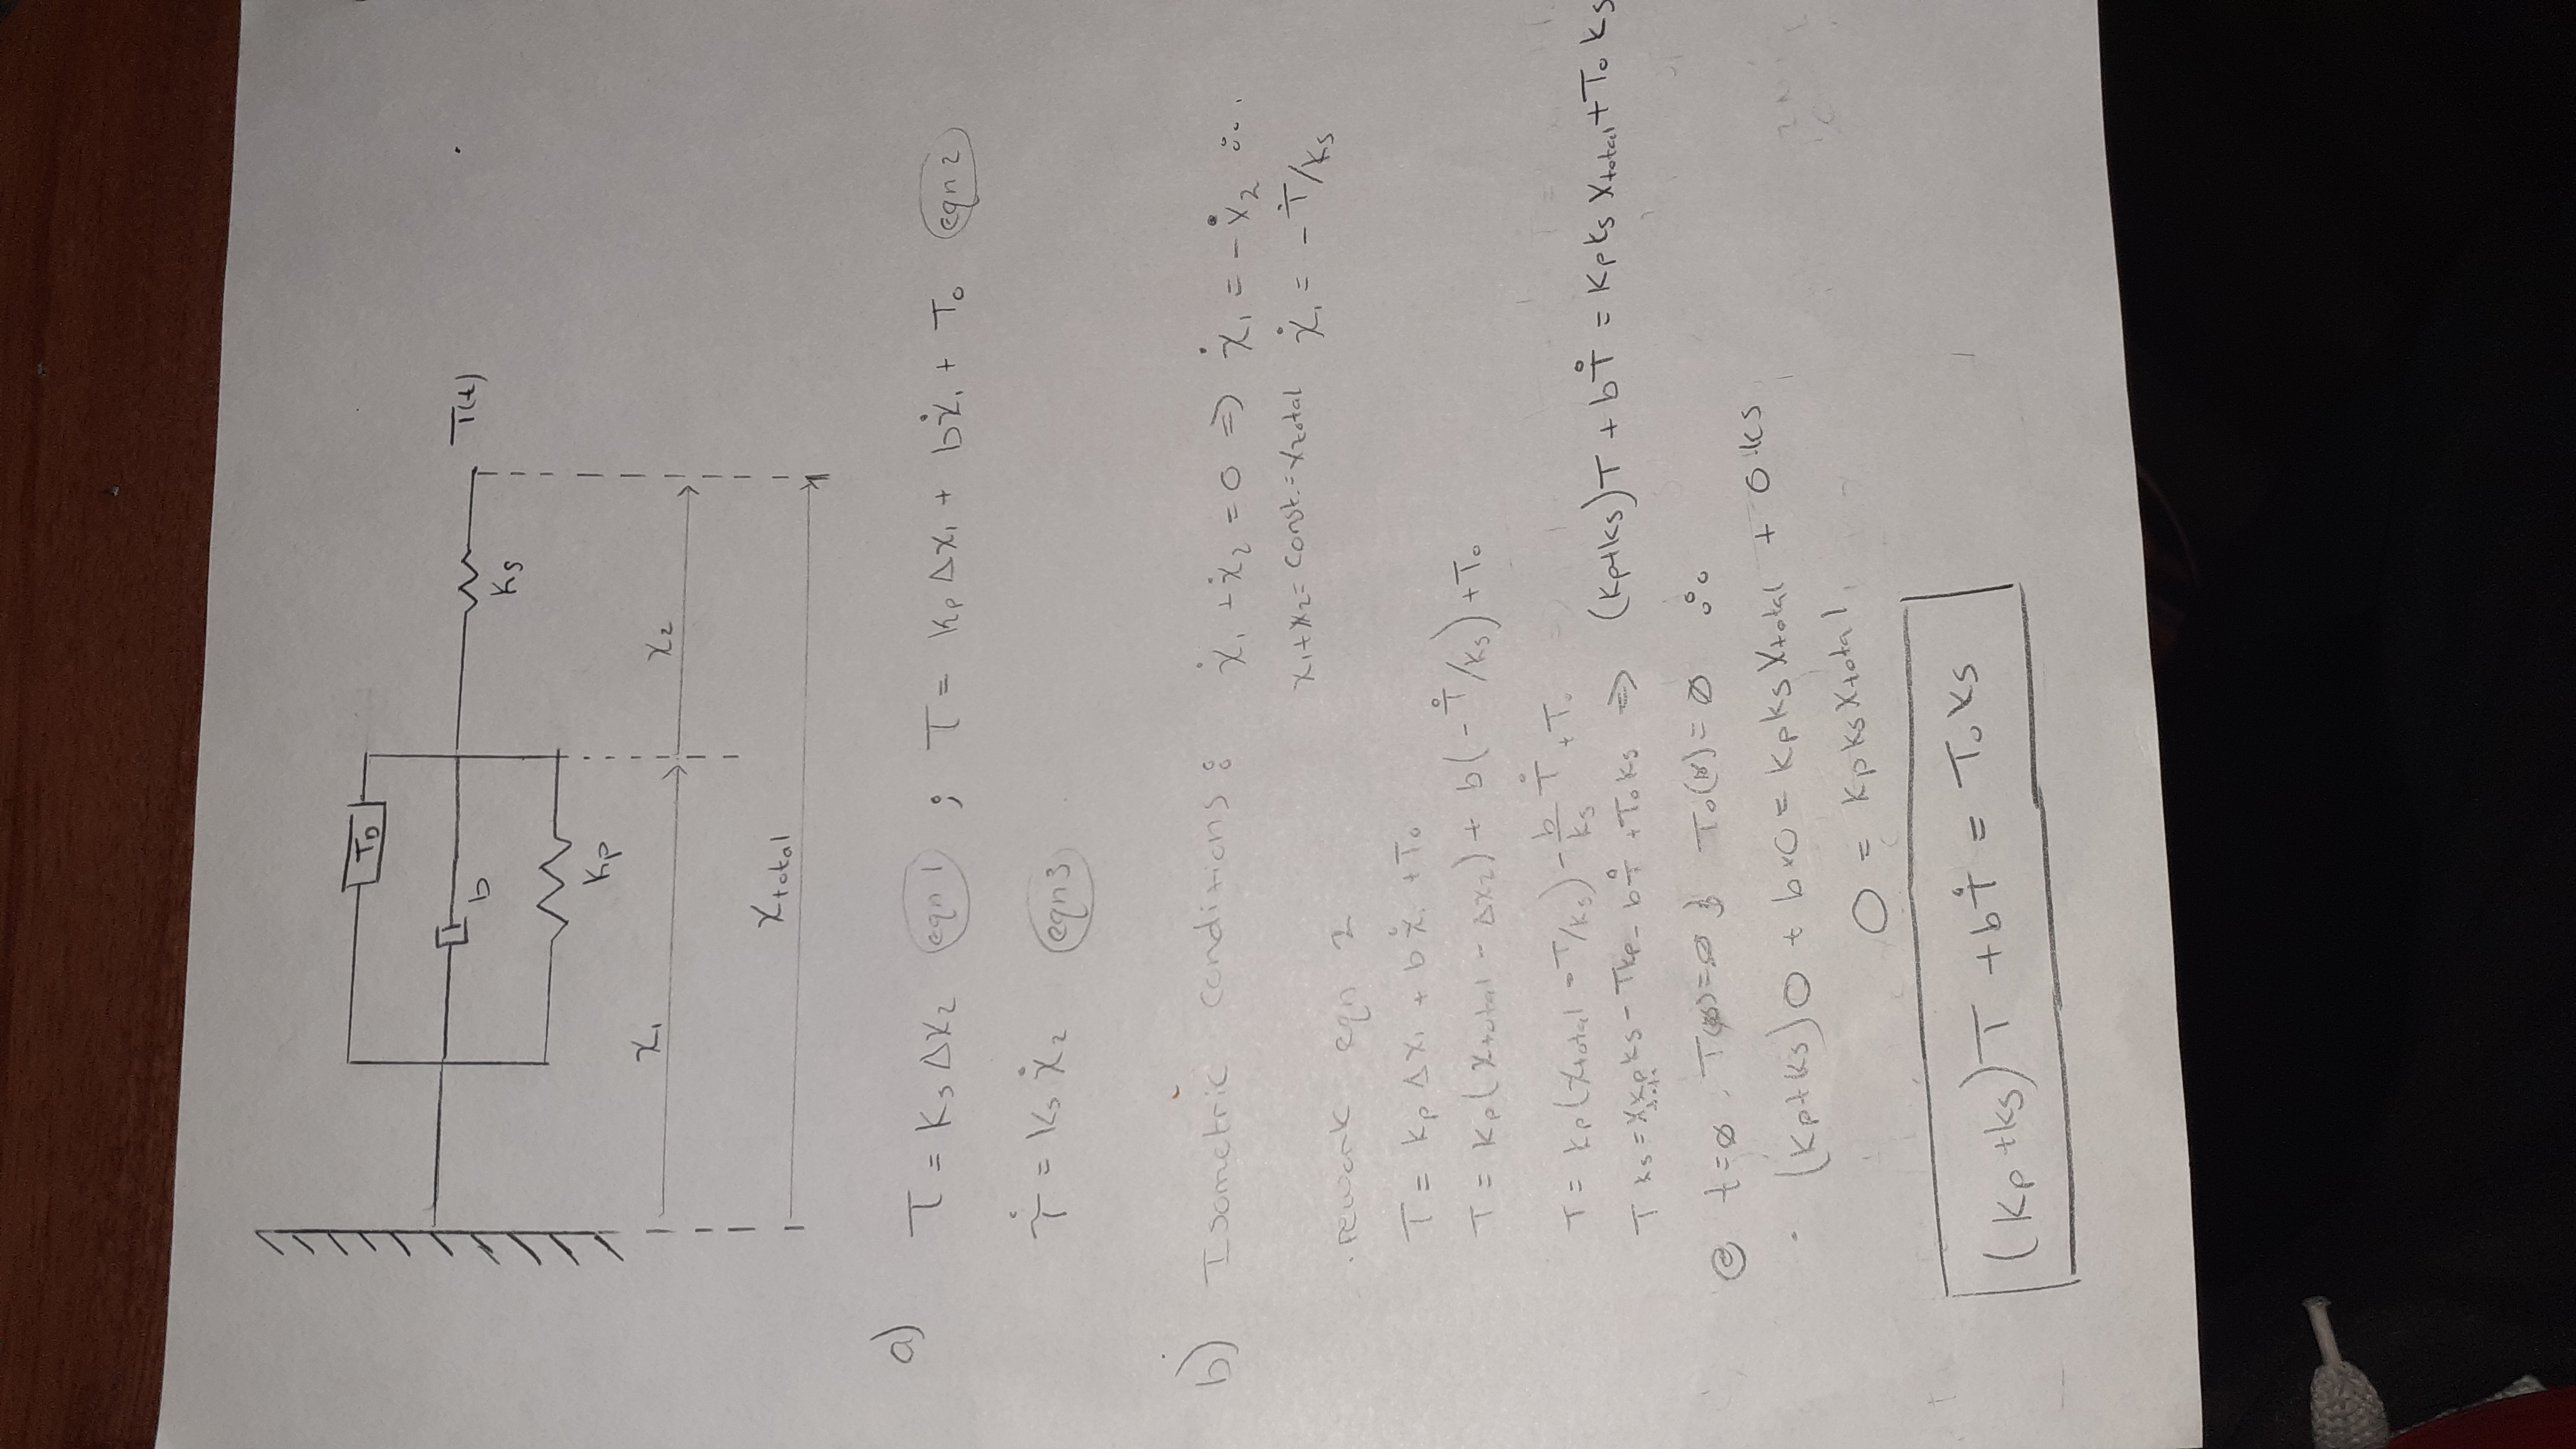 T₀
b
T(t)
Ks
Kp
x₁
x₂
xtotal
a) T = Ks Δx₂ eqn 1 ; T = Kp Δx₁ + bẋ₁ + T₀ eqn 2
Ṫ = Ks ẋ₂ eqn 3
b) Isometric conditions : ẋ₁ + ẋ₂ = 0 ⇒ ẋ₁ = -ẋ₂ ∴
x₁+x₂ = const. = xtotal ẋ₁ = -Ṫ/ks
. rework eqn 2
T = Kp Δx₁ + bẋ₁ + T₀
T = Kp(xtotal - Δx₂) + b(-Ṫ/ks) + T₀
T = Kp(xtotal - T/ks) - b/ks Ṫ + T₀
T ks = xtotal kp ks - Tkp - bṪ + T₀ ks ⇒ (kp+ks)T + bṪ = Kpks xtotal + T₀ ks
@ t=∅ . T(∅)=∅ } T₀(∅) = ∅ ∴
(kp+ks)0 + b·0 = kpks xtotal + 0·ks
0 = kpks xtotal
(kp+ks)T + bṪ = T₀ ks